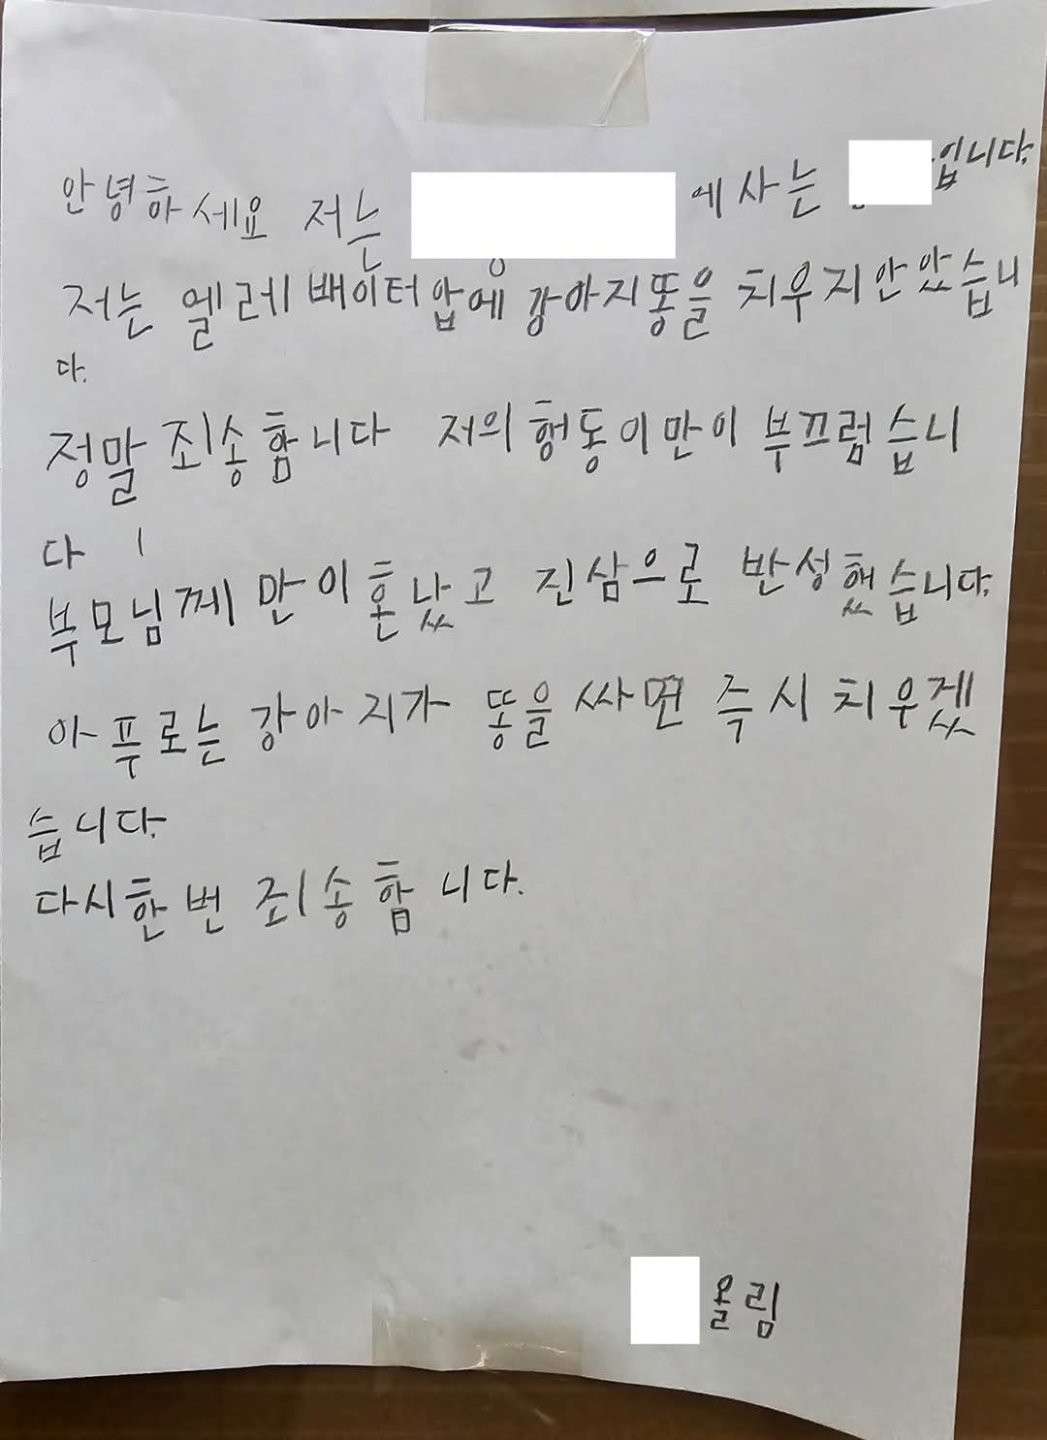 안녕하세요 저는 에 사는 입니다.
저는 엘레베이터 압에 강아지 똥을 치우지 안았습니
다.
정말 죄송합니다 저의 행동이 만이 부끄럼습니
다
부모님께 만이 혼났고 진삼으로 반성했습니다.
아푸로는 강아지가 똥을 싸면 즉시 치우겠
습니다.
다시한번 죄송합니다.
올림